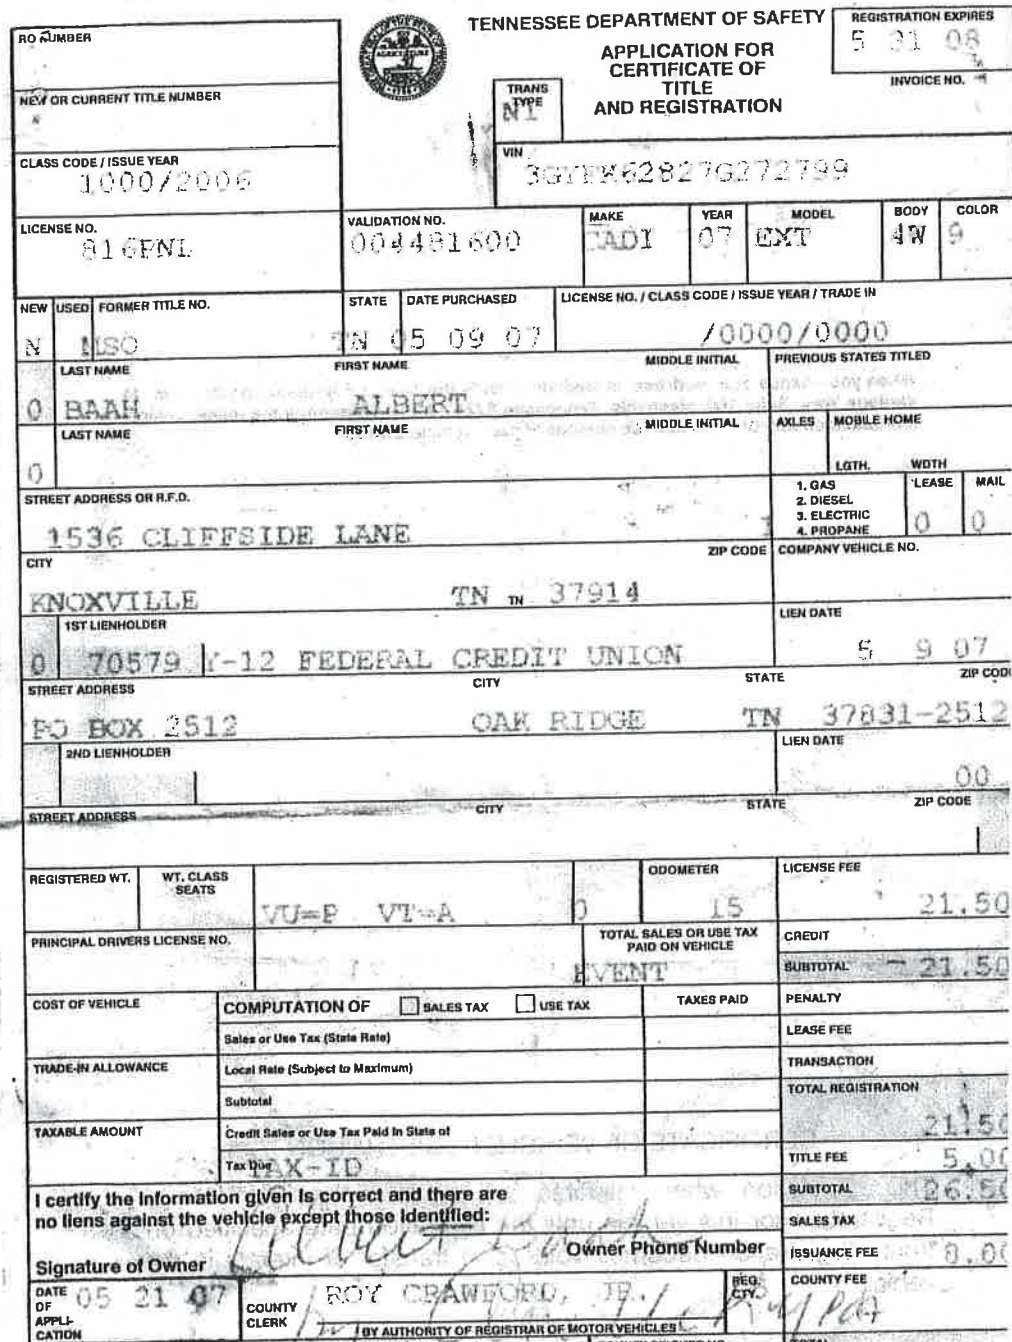 TENNESSEE DEPARTMENT OF SAFETY
APPLICATION FOR
CERTIFICATE OF
TITLE
AND REGISTRATION
REGISTRATION EXPIRES
5 31 08
INVOICE NO.
RO NUMBER
NEW OR CURRENT TITLE NUMBER
TRANS TYPE
NT
CLASS CODE / ISSUE YEAR
1000/2006
VIN
3GYFK62827G272799
LICENSE NO.
816PNL
VALIDATION NO.
004481600
MAKE
CADI
YEAR
07
MODEL
EXT
BODY
4W
COLOR
9
NEW USED FORMER TITLE NO.
N MSO
STATE
TN
DATE PURCHASED
05 09 07
LICENSE NO. / CLASS CODE / ISSUE YEAR / TRADE IN
/0000/0000
LAST NAME FIRST NAME MIDDLE INITIAL
0 BAAH ALBERT
PREVIOUS STATES TITLED
LAST NAME FIRST NAME MIDDLE INITIAL
0
AXLES MOBILE HOME
LGTH. WDTH
STREET ADDRESS OR R.F.D.
1536 CLIFFSIDE LANE
1
1. GAS
2. DIESEL
3. ELECTRIC
4. PROPANE
LEASE
0
MAIL
0
CITY ZIP CODE
KNOXVILLE TN TN 37914
COMPANY VEHICLE NO.
1ST LIENHOLDER
0 70579 Y-12 FEDERAL CREDIT UNION
LIEN DATE
5 9 07
STREET ADDRESS CITY STATE ZIP CODE
PO BOX 2512 OAK RIDGE TN 37831-2512
2ND LIENHOLDER
LIEN DATE
00
STREET ADDRESS CITY STATE ZIP CODE
REGISTERED WT.
WT. CLASS SEATS
VU=P VT=A 0
ODOMETER
15
LICENSE FEE
21.50
PRINCIPAL DRIVERS LICENSE NO.
TOTAL SALES OR USE TAX
PAID ON VEHICLE
EVENT
CREDIT
SUBTOTAL 21.50
COST OF VEHICLE
COMPUTATION OF SALES TAX USE TAX
TAXES PAID
PENALTY
Sales or Use Tax (State Rate)
LEASE FEE
TRADE-IN ALLOWANCE
Local Rate (Subject to Maximum)
TRANSACTION
Subtotal
TOTAL REGISTRATION
21.50
TAXABLE AMOUNT
Credit Sales or Use Tax Paid In State of
Tax Due TAX-ID
TITLE FEE 5.00
I certify the information given is correct and there are
no liens against the vehicle except those identified:
SUBTOTAL 26.50
SALES TAX
Signature of Owner Albert Baah
Owner Phone Number
ISSUANCE FEE 8.00
DATE OF APPLI-CATION
05 21 07
COUNTY CLERK
ROY CRAWFORD, JR.
BY AUTHORITY OF REGISTRAR OF MOTOR VEHICLES
REG. CTY.
COUNTY FEE
TOTAL